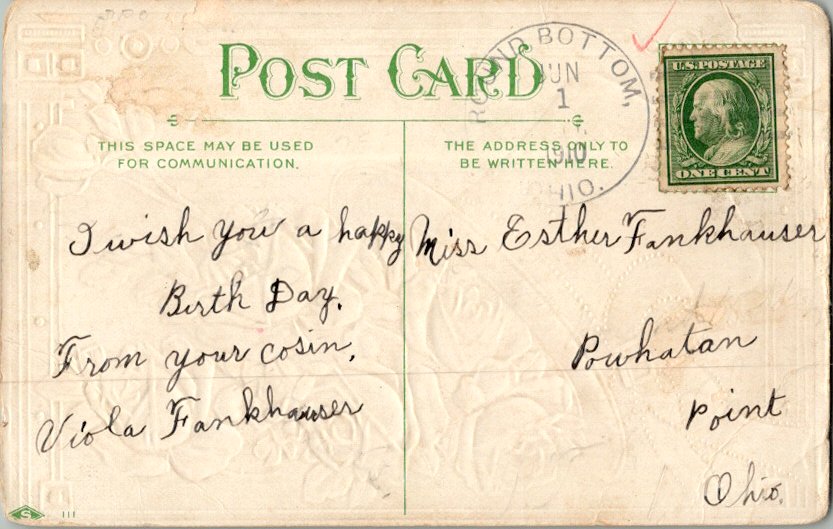 POST CARD
ROUND BOTTOM,
JUN
1
1910
OHIO.
U.S. POSTAGE
ONE CENT
THIS SPACE MAY BE USED
FOR COMMUNICATION.
THE ADDRESS ONLY TO
BE WRITTEN HERE.
I wish you a happy
Birth Day.
From your cosin,
Viola Fankhauser
Miss Esther Fankhauser
Powhatan
Point
Ohio.
S
111